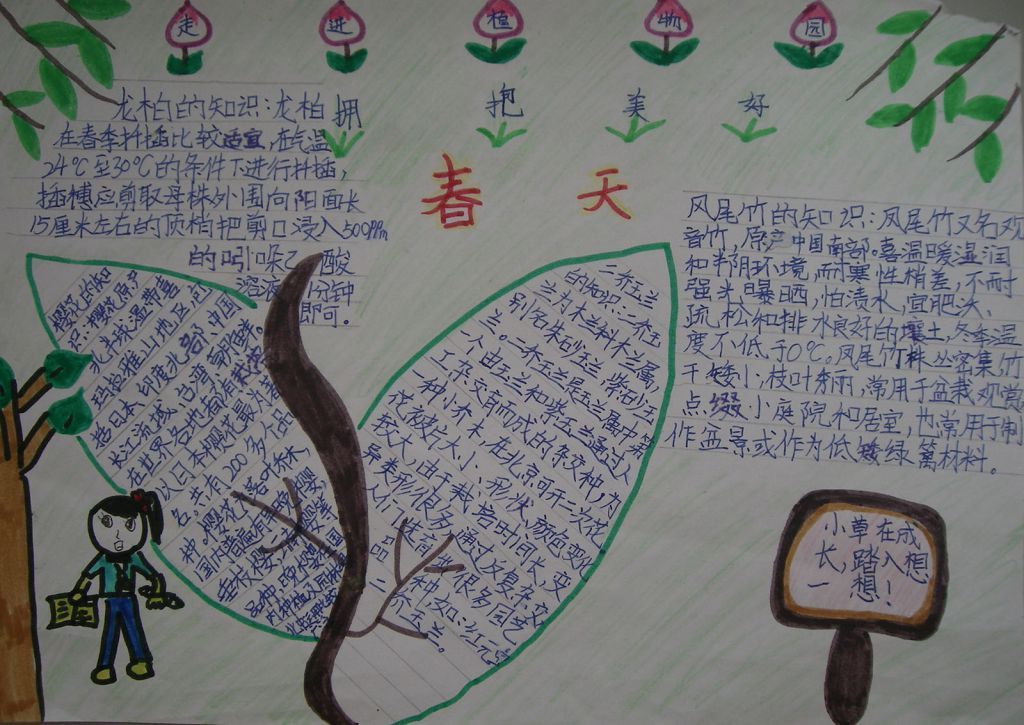 走 进 植 物 园
拥 抱 美 好
春 天
龙柏的知识:龙柏
在春季扦插比较适宜,在气温
24℃至30℃的条件下进行扦插,
插穗应剪取母株外围向阳面长
15厘米左右的顶梢把剪口浸入500PPm
的吲哚乙酸
溶液 分钟
即可。
樱花的知
识:樱花原产
北半球温带喜
马拉雅山地区,包
括日本、印度北部、中国
长江流域、台湾
在世界各地都有栽培。
以日本樱花最为著
名。共有200多个品
种,樱花
二乔玉兰
的知识:二乔玉
兰为木兰科木兰属,
别名朱砂玉兰、紫砂玉
兰。二乔玉兰是玉兰属中第
一人由玉兰和紫玉兰通过人
工杂交育而成的杂交种,为
一种小木木,在北京可开二次花
花被片大小、形状、颜色变化
较大,由于栽培时间长,变
异类形很多,通过反复杂交
人们选育了很多园艺
品种如:红元宝
二乔玉兰。
凤尾竹的知识:凤尾竹又名观
音竹,原产中国南部。喜温暖湿润
和半阴环境,耐寒性稍差,不耐
强光曝晒,怕渍水,宜肥沃、
疏松和排水良好的壤土,冬季温
度不低于0℃。凤尾竹株丛密集,竹
干矮小,枝叶秀丽,常用于盆栽观赏,
点缀小庭院和居室,也常用于制
作盆景或作为低矮绿篱材料。
小草在成
长,踏入想
一想!